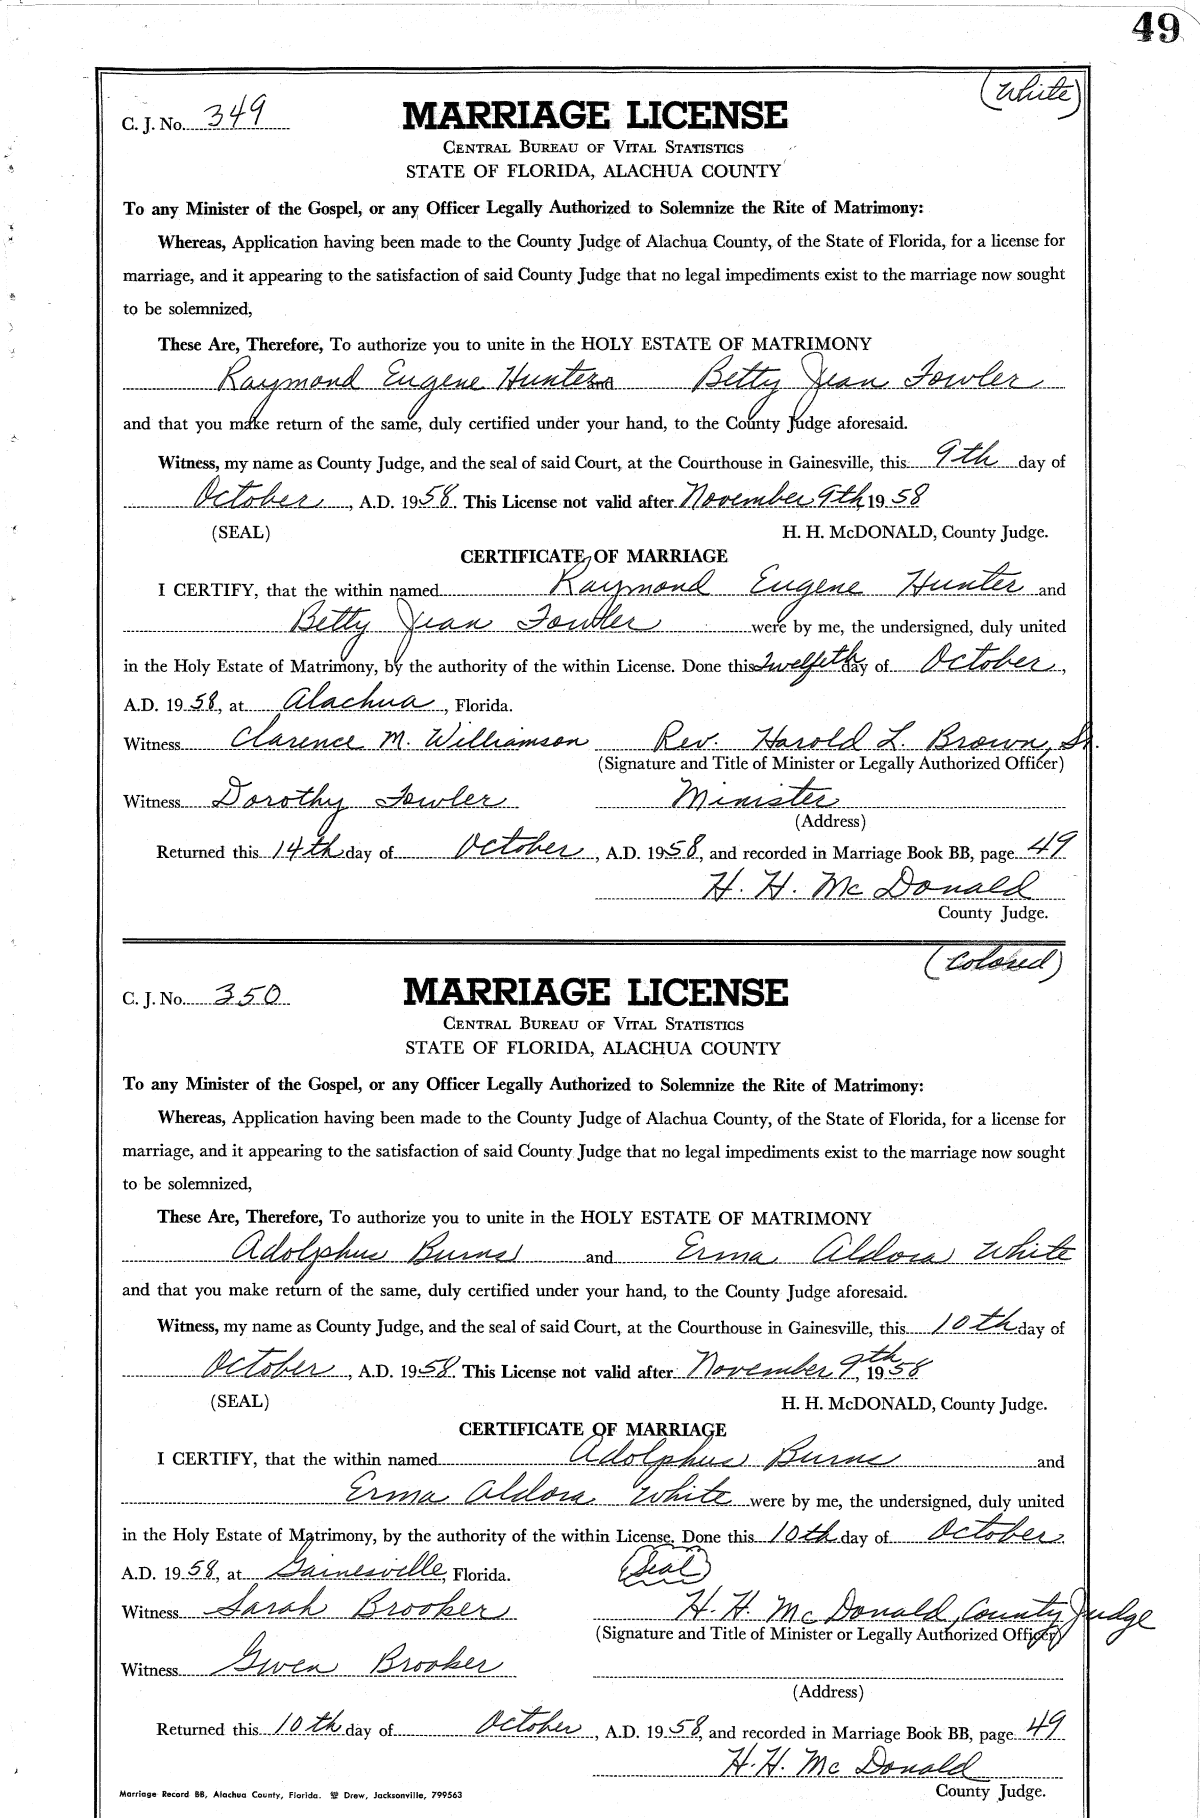 49
(White)
C. J. No. 349
MARRIAGE LICENSE
CENTRAL BUREAU OF VITAL STATISTICS
STATE OF FLORIDA, ALACHUA COUNTY
To any Minister of the Gospel, or any Officer Legally Authorized to Solemnize the Rite of Matrimony:
Whereas, Application having been made to the County Judge of Alachua County, of the State of Florida, for a license for
marriage, and it appearing to the satisfaction of said County Judge that no legal impediments exist to the marriage now sought
to be solemnized,
These Are, Therefore, To authorize you to unite in the HOLY ESTATE OF MATRIMONY
Raymond Eugene Hunter and Betty Jean Fowler
and that you make return of the same, duly certified under your hand, to the County Judge aforesaid.
Witness, my name as County Judge, and the seal of said Court, at the Courthouse in Gainesville, this 9th day of
October, A.D. 1958. This License not valid after November 9th, 1958
(SEAL) H. H. McDONALD, County Judge.
CERTIFICATE OF MARRIAGE
I CERTIFY, that the within named Raymond Eugene Hunter and
Betty Jean Fowler were by me, the undersigned, duly united
in the Holy Estate of Matrimony, by the authority of the within License. Done this Twelfeth day of October,
A.D. 1958, at Alachua, Florida.
Witness Clarence M. Williamson Rev. Harold L. Brown, Sr.
(Signature and Title of Minister or Legally Authorized Officer)
Witness Dorothy Fowler Minister
(Address)
Returned this 14th day of October, A.D. 1958, and recorded in Marriage Book BB, page 49
H. H. McDonald
County Judge.
(Colored)
C. J. No. 350
MARRIAGE LICENSE
CENTRAL BUREAU OF VITAL STATISTICS
STATE OF FLORIDA, ALACHUA COUNTY
To any Minister of the Gospel, or any Officer Legally Authorized to Solemnize the Rite of Matrimony:
Whereas, Application having been made to the County Judge of Alachua County, of the State of Florida, for a license for
marriage, and it appearing to the satisfaction of said County Judge that no legal impediments exist to the marriage now sought
to be solemnized,
These Are, Therefore, To authorize you to unite in the HOLY ESTATE OF MATRIMONY
Adolphus Burns and Erma Aldora White
and that you make return of the same, duly certified under your hand, to the County Judge aforesaid.
Witness, my name as County Judge, and the seal of said Court, at the Courthouse in Gainesville, this 10th day of
October, A.D. 1958. This License not valid after November 9th, 1958
(SEAL) H. H. McDONALD, County Judge.
CERTIFICATE OF MARRIAGE
I CERTIFY, that the within named Adolphus Burns and
Erma Aldora White were by me, the undersigned, duly united
in the Holy Estate of Matrimony, by the authority of the within License. Done this 10th day of October,
A.D. 1958, at Gainesville, Florida. (Seal)
Witness Sarah Brooker H. H. McDonald, County Judge
(Signature and Title of Minister or Legally Authorized Officer)
Witness Gwen Brooker
(Address)
Returned this 10th day of October, A.D. 1958, and recorded in Marriage Book BB, page 49
H. H. McDonald
County Judge.
Marriage Record BB, Alachua County, Florida. Drew, Jacksonville, 799563